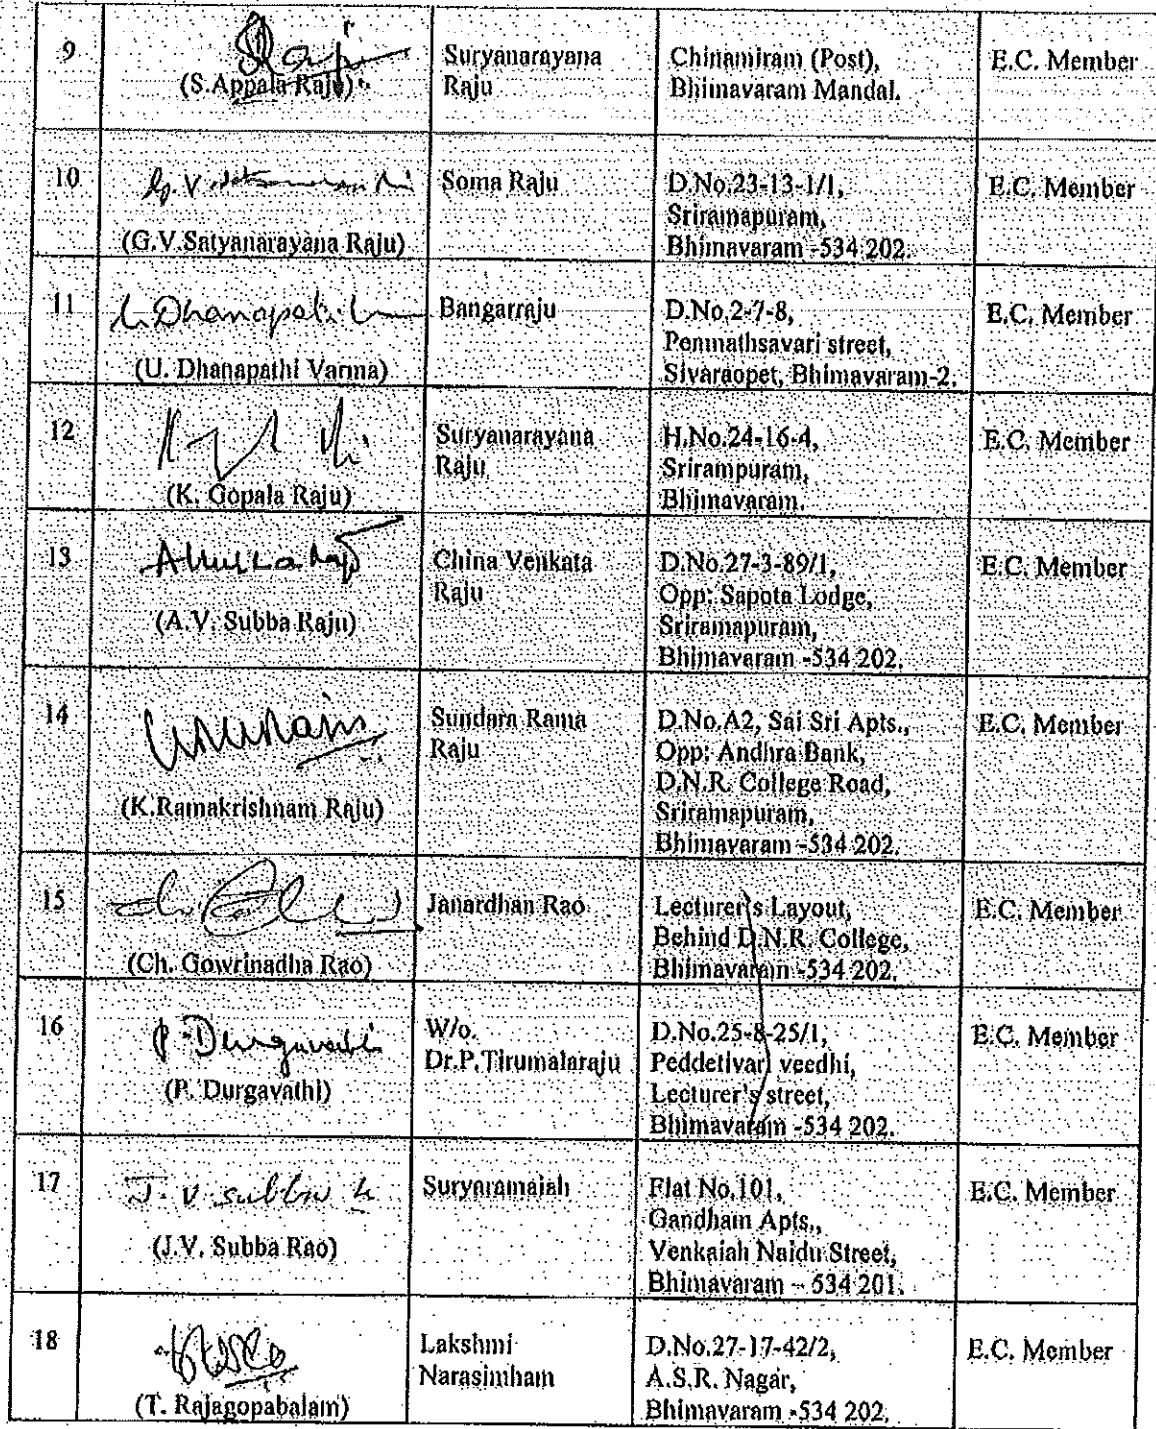 9
(S.Appala Raju)
Suryanarayana
Raju
Chinamiram (Post),
Bhimavaram Mandal.
E.C. Member
10
(G.V.Satyanarayana Raju)
Soma Raju
D.No.23-13-1/1,
Sriramapuram,
Bhimavaram -534 202.
E.C. Member
11
(U. Dhanapathi Varma)
Bangarraju
D.No.2-7-8,
Penmathsavari street,
Sivaraopet, Bhimavaram-2.
E.C. Member
12
(K. Gopala Raju)
Suryanarayana
Raju
H.No.24-16-4,
Srirampuram,
Bhimavaram.
E.C. Member
13
(A.V. Subba Raju)
China Venkata
Raju
D.No.27-3-89/1,
Opp: Sapota Lodge,
Sriramapuram,
Bhimavaram -534 202.
E.C. Member
14
(K.Ramakrishnam Raju)
Sundara Rama
Raju
D.No.A2, Sai Sri Apts.,
Opp: Andhra Bank,
D.N.R. College Road,
Sriramapuram,
Bhimavaram -534 202.
E.C. Member
15
(Ch. Gowrinadha Rao)
Janardhan Rao
Lecturer's Layout,
Behind D.N.R. College,
Bhimavaram -534 202.
E.C. Member
16
P. Durgavathi
(P. Durgavathi)
W/o.
Dr.P.Tirumalaraju
D.No.25-8-25/1,
Peddetivari veedhi,
Lecturer's street,
Bhimavaram -534 202.
E.C. Member
17
J. V Subba
(J.V. Subba Rao)
Suryaramaiah
Flat No.101,
Gandham Apts.,
Venkaiah Naidu Street,
Bhimavaram – 534 201.
E.C. Member
18
(T. Rajagopabalam)
Lakshmi
Narasimham
D.No.27-17-42/2,
A.S.R. Nagar,
Bhimavaram -534 202.
E.C. Member